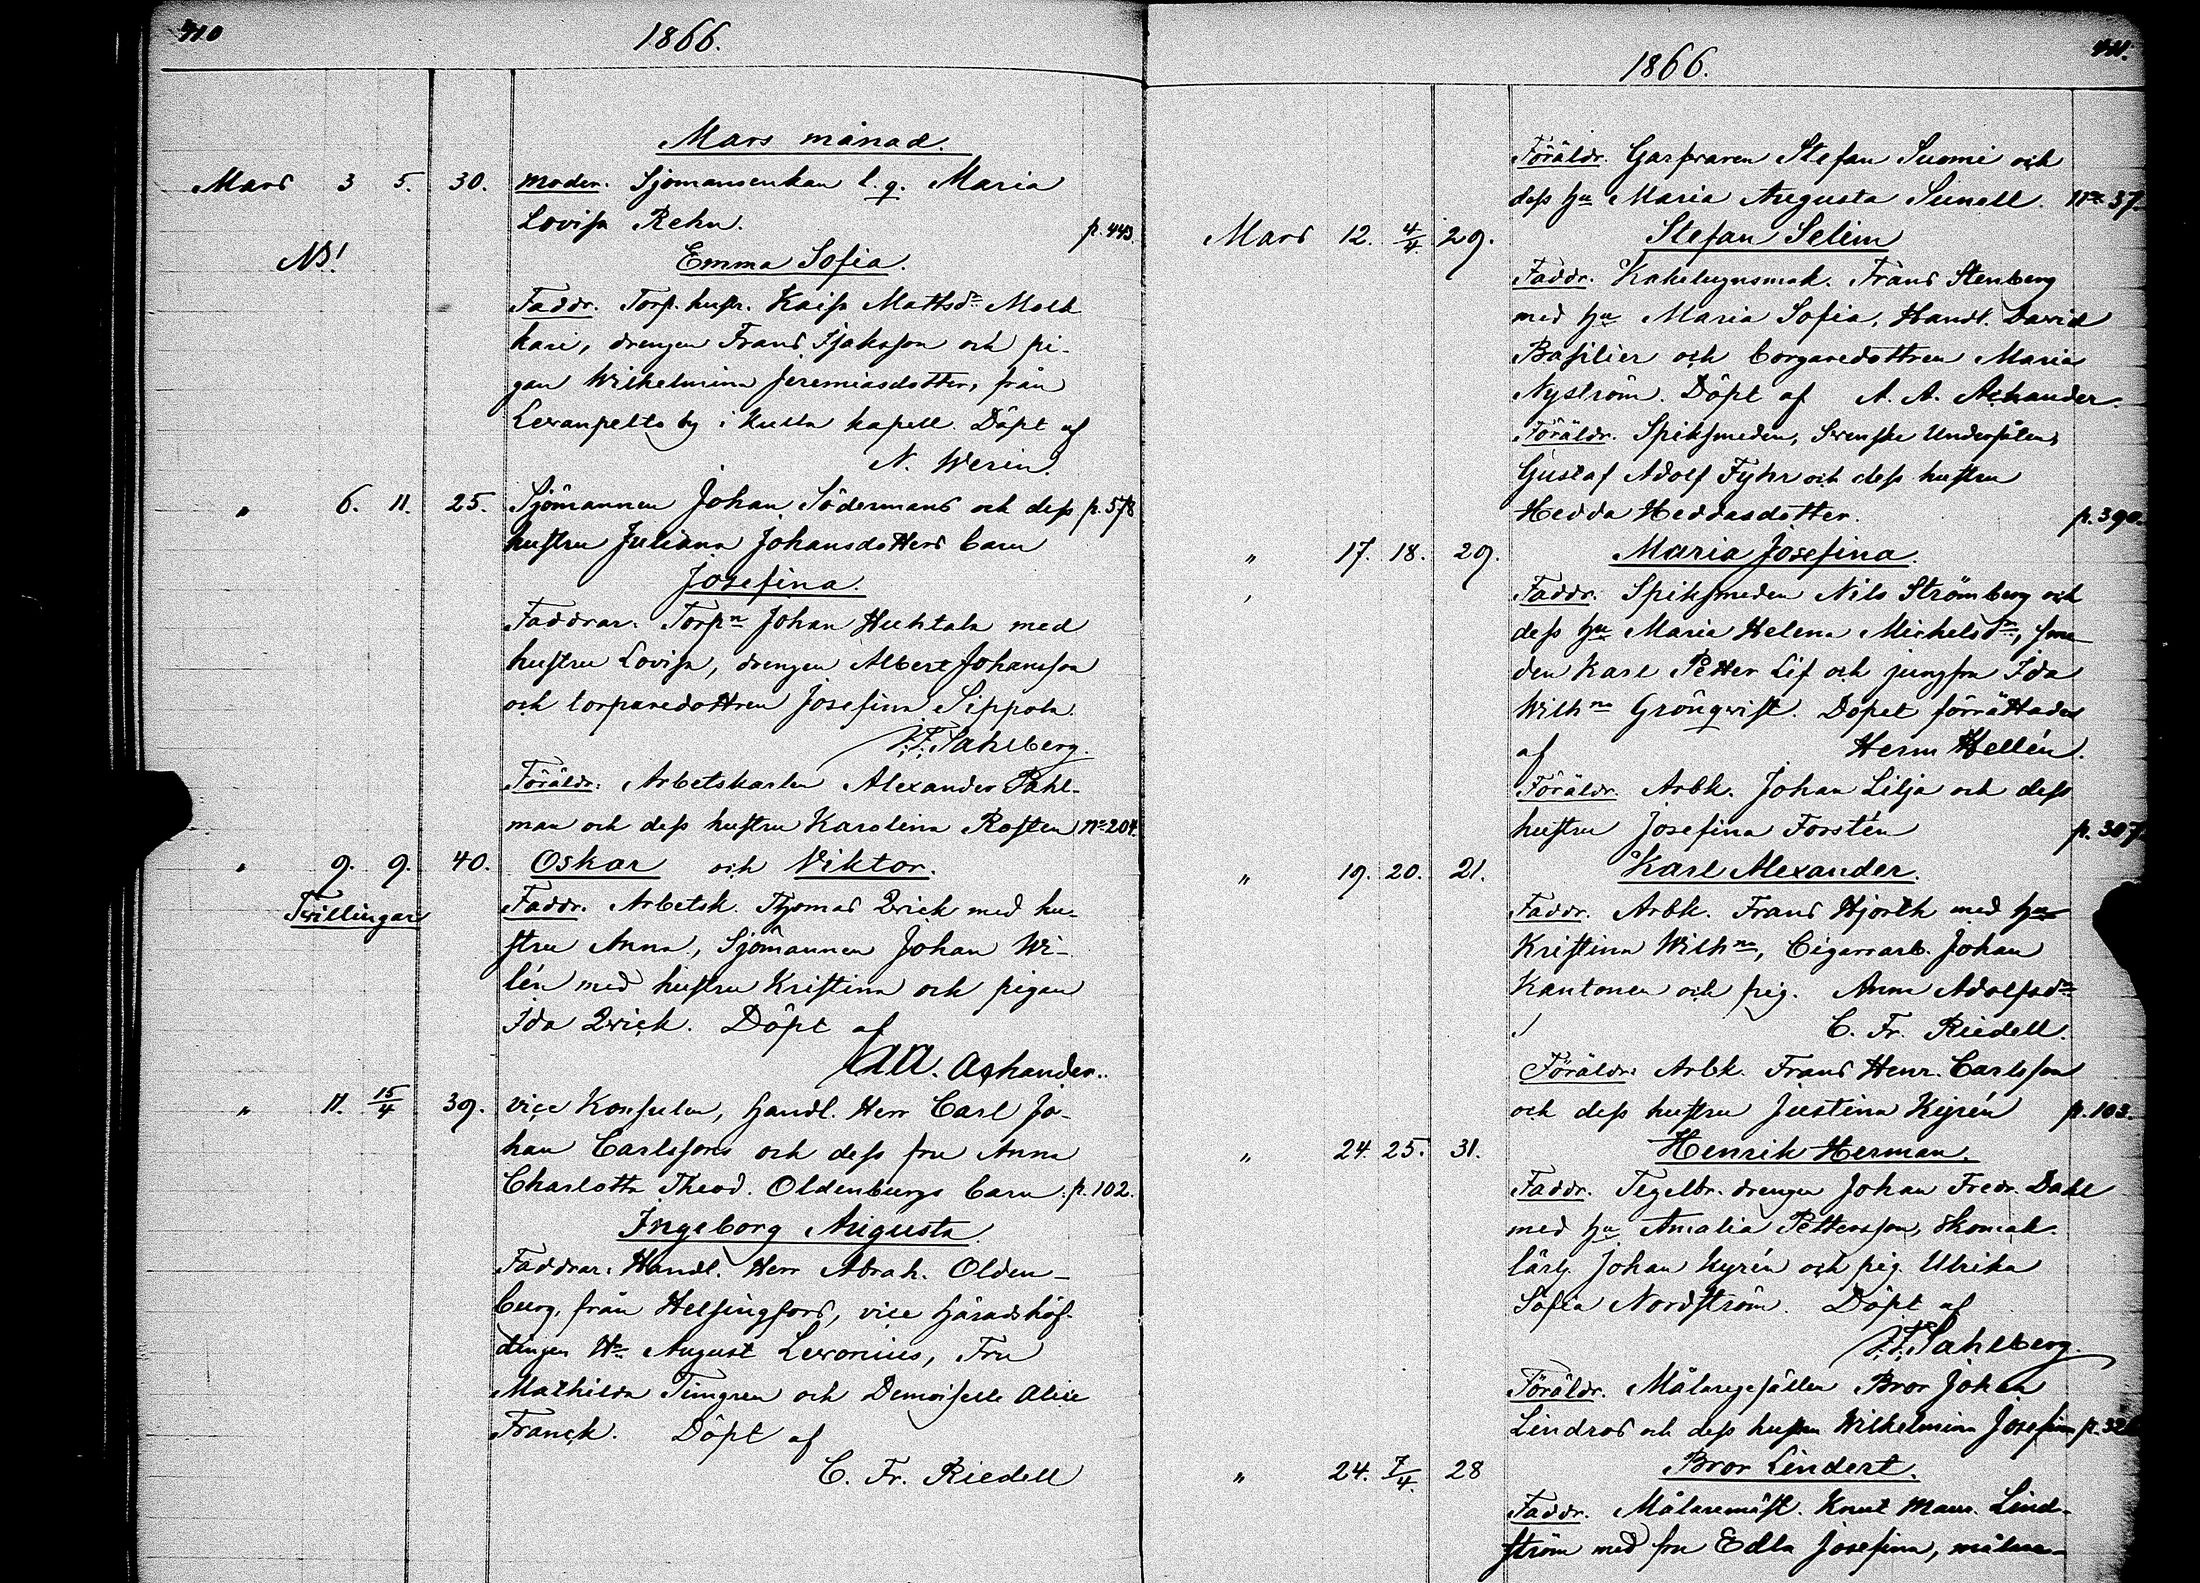 410
1866.
Mars månad.
Mars 3 5. 30. Moder. Sjömansenkan l. q. Maria
Lovisa Rehn. p. 443.
NB! Emma Sofia.
Faddr. Torp. hustr. Kaisa Mattsdr
kari, drengen Frans Isaksson och pi-
gan Wilhelmina Jeremiasdotter, från
by i Kulla kapell. Döpt af
N. Werin.
„ 6. 11. 25. Sjömannen Johan Södermans och dess p. 578
hustru Juliana Johansdotters barn
Josefina.
Faddrar. Torpn Johan Huhtala med
hustru Lovisa, drengen Albert Johansson
och torparedottren Josefina Sippola.
J.F. Sahlberg.
Föräldr. Arbetskarlen Alexander Pahl-
man och dess hustru Karolina Rosten No 204.
„ 9. 9. 40. Oskar och Viktor.
Tvillingar Faddr. Arbetsk. Thomas Qvick med hu-
stru Anna, Sjömannen Johan Wi-
lén med hustru Kristina och pigan
Ida Qvick. Döpt af
AA. Achander.
„ 11. 15/4 39. vice Konsulen, Handl. Herr Carl Jo-
han Carlssons och dess fru Anna
Charlotta Theod. Oldenburgs barn. p. 102.
Ingeborg Augusta
Faddrar. Handl. Herr Abrah. Olden-
burg, från Helsingfors, vice Häradshöf-
dingen Hr August Levonius, Fru
Mathilda Timgren och Demoiselle Alice
Franck. Döpt af
C. Fr. Riedell
411.
1866.
Föräldr. Garfvaren Stefan Suomi och
dess hu Maria Augusta Sunell. No 37.
Mars 12. 4/4. 29. Stefan Selim
Faddr. Kakelugnsmak. Frans Stenberg
med hu Maria Sofia, Handl. David
Basilier och borgaredottren Maria
Nyström. Döpt af A. A. Achander.
Föräldr. Spiksmeden, Svenske Undersåten,
Gustaf Adolf Fyhr och dess hustru
Hedda Heddasdotter. p. 390.
„ 17. 18. 29. Maria Josefina.
Faddr. Spiksmeden Nils Strömberg och
dess hu Maria Helena Michelsdr, sme-
den Karl Petter Lif och jungfru Ida
Wilhna Grönqvist. Dopet förrättades
af Herm Hellén.
Föräldr. Arbk. Johan Lilja och dess
hustru Josefina Forstén p. 307
„ 19. 20. 21. Karl Alexander.
Faddr. Arbk. Frans Hjorth med hu
Kristina Wilhna, Cigarrarb. Johan
Kantonen och pig. Anna Adolfsdr
C. Fr. Riedell.
Föräldr. Arbk. Frans Henr. Carlsson
och dess hustru Justina Kyrén p. 103.
„ 24. 25. 31. Henrik Herman.
Faddr. Tegelbr. drengen Johan Fredr. Dahl
med hu Amalia Pettersson, skomak.
lärl. Johan Kyrén och pig. Ulrika
Sofia Nordström. Döpt af
J.F. Sahlberg.
Föräldr. Målaregesällen Bror Johan
Lindros och dess hustru Wilhelmina Josefina
„ 24. 7/4. 28 Bror Lindert.
Faddr. Målaremäst. Knut Maur. Lind-
ström med fru Edla Josefina, målare-